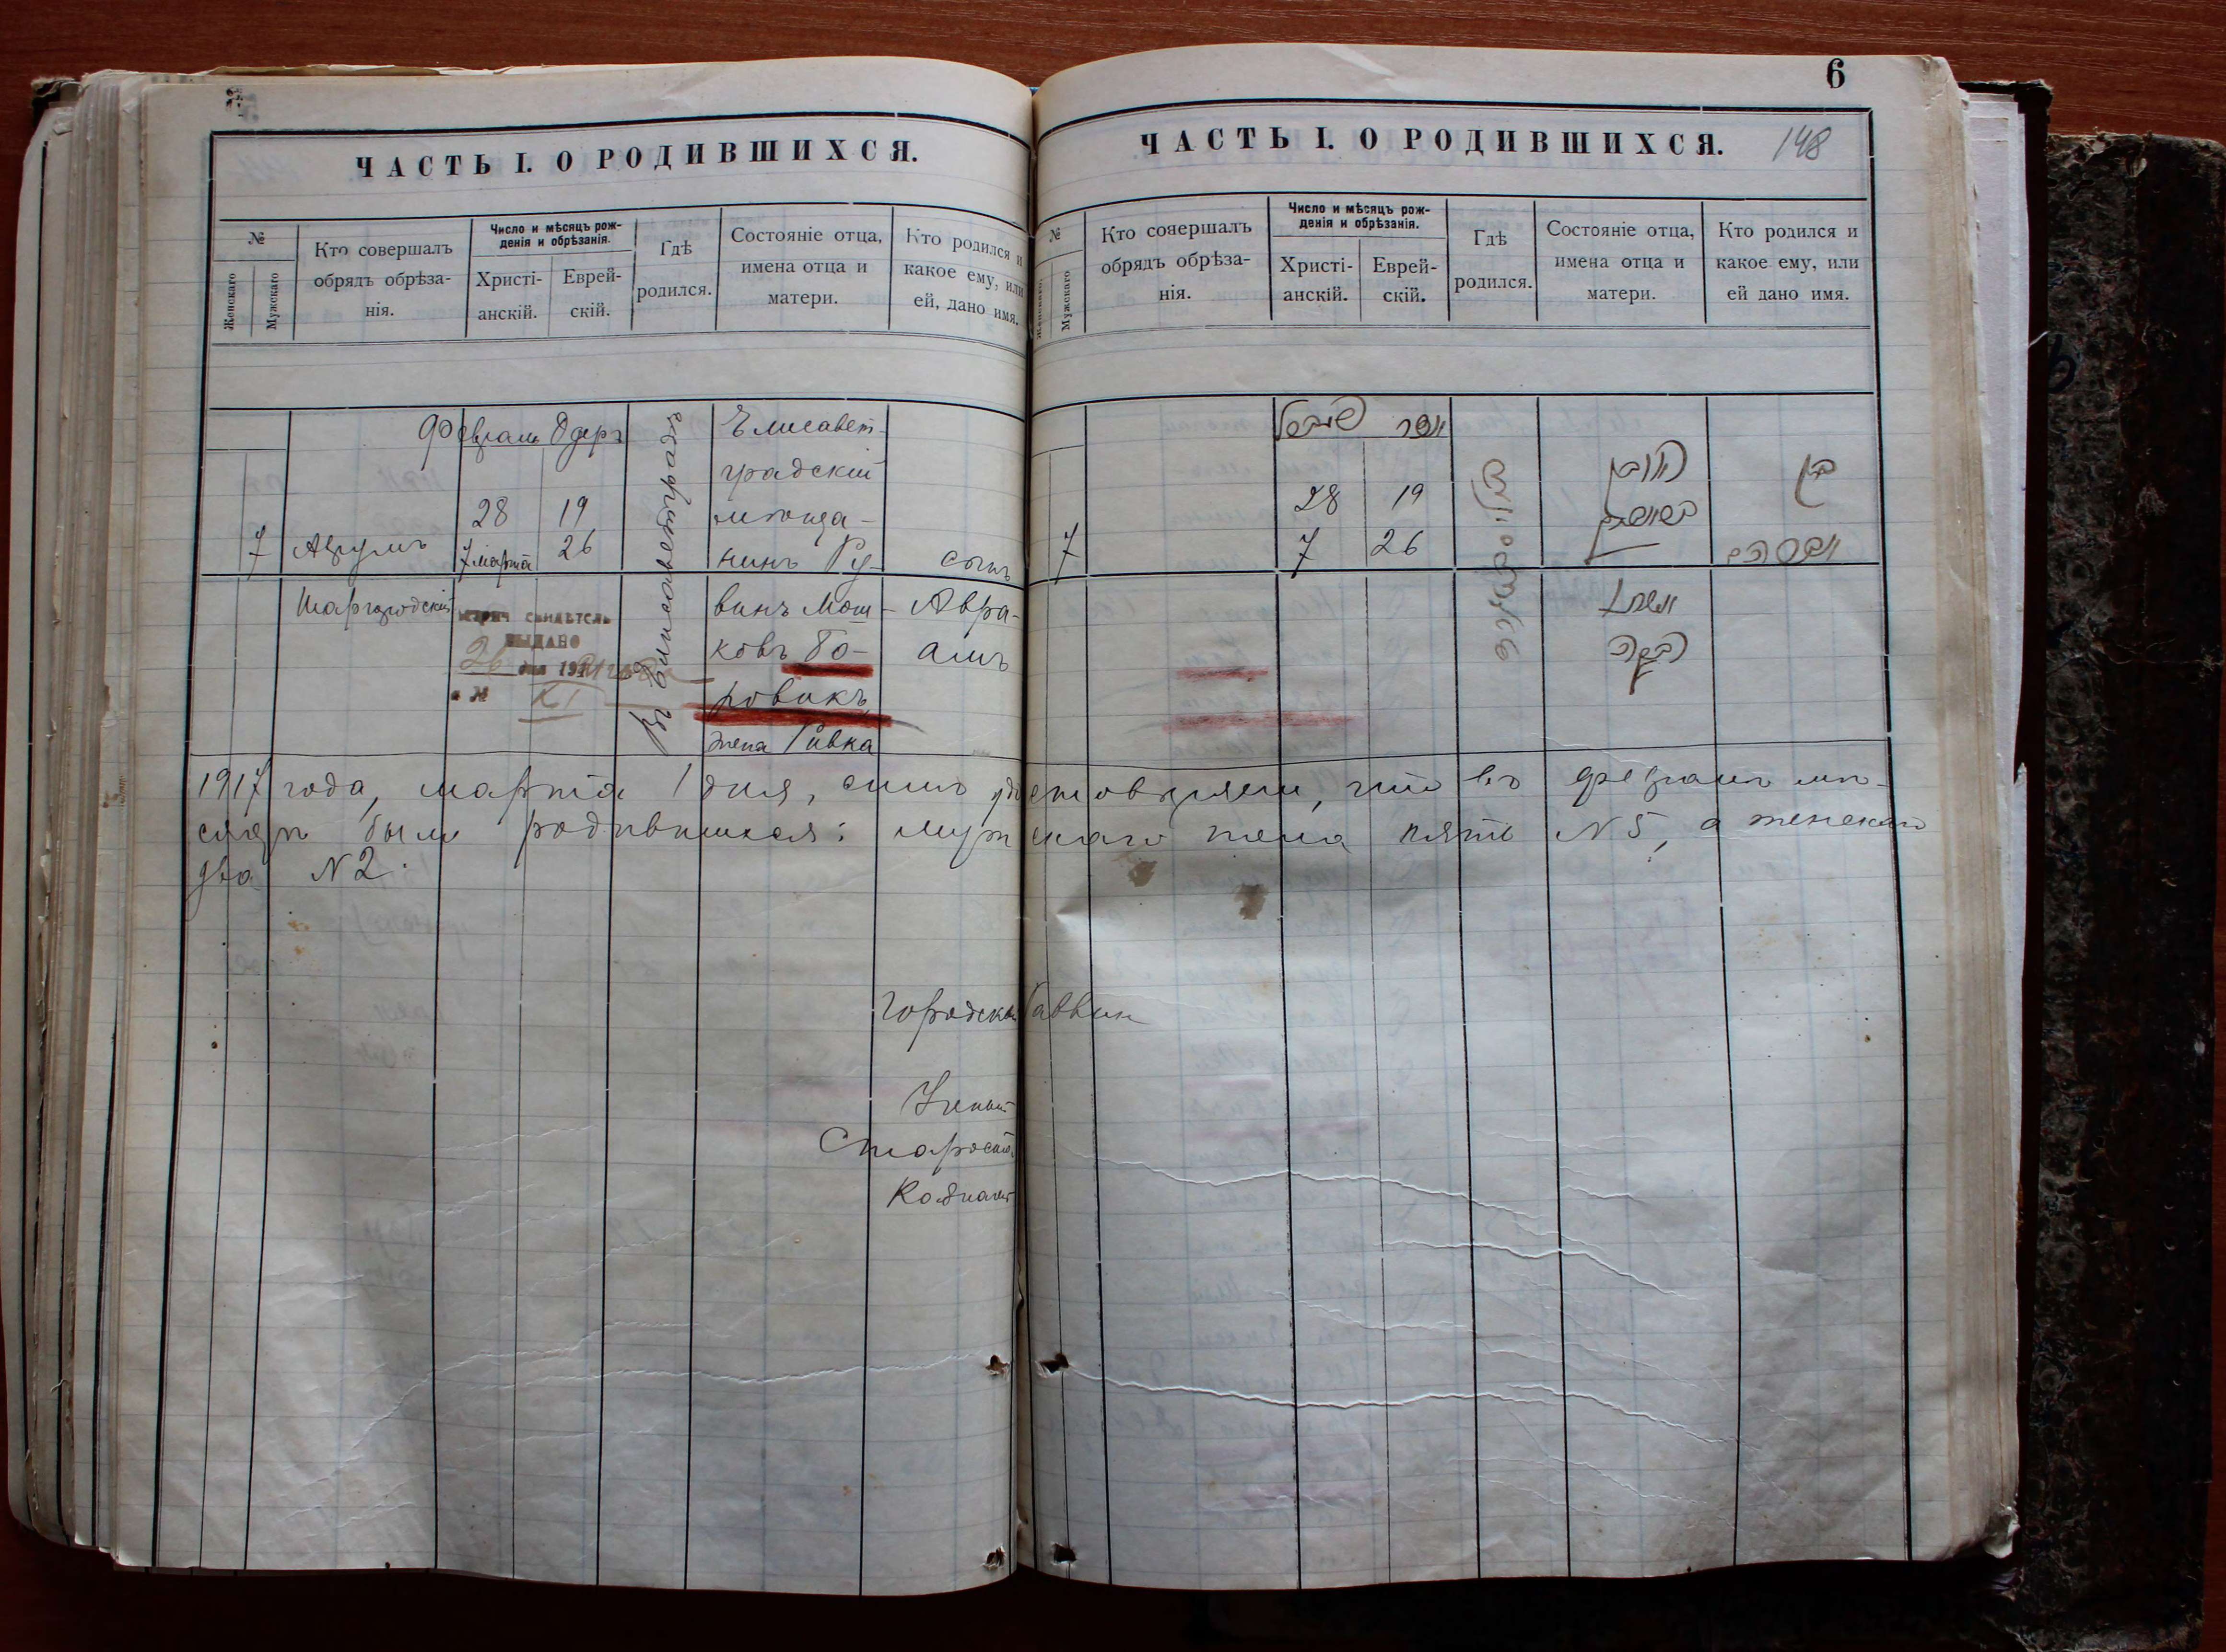 6
ЧАСТЬ I. О РОДИВШИХСЯ.
№
Женскаго
Мужскаго
Кто совершалъ
обрядъ обрѣза-
нія.
Число и мѣсяцъ рож-
денія и обрѣзанія.
Христі-
анскій.
Еврей-
скій.
Гдѣ
родился.
Состояніе отца,
имена отца и
матери.
Кто родился и
какое ему, или
ей, дано имя.
Февраль Одеръ
28 19
7 7 марта 26
Шаргородскій
ВЫДАНО
26 дня 19
№
Въ Елисаветградѣ
Елисавет-
градскій
мѣща-
нинъ Ру-
винъ Мош-
ковъ Бо-
ровикъ
жена Ривка
сынъ
Авра-
амъ
ЧАСТЬ I. О РОДИВШИХСЯ. 148
№
Женскаго
Мужскаго
Кто совершалъ
обрядъ обрѣза-
нія.
Число и мѣсяцъ рож-
денія и обрѣзанія.
Христі-
анскій.
Еврей-
скій.
Гдѣ
родился.
Состояніе отца,
имена отца и
матери.
Кто родился и
какое ему, или
ей дано имя.
28 19
7 7 26
ראובן
רבקה
בן
אברהם
1917 года, марта 1 дня, симъ удостовѣряемъ, что въ февралѣ мѣ-
сяцѣ было родившихся: мужскаго пола пять N 5, а женскаго
два N 2.
Городской Раввин
Ученый
Староста
Казначей